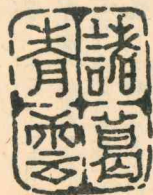 諸葛
青雲